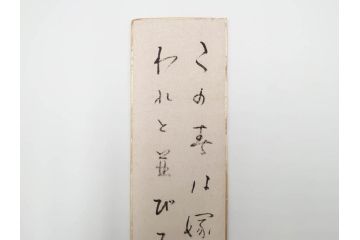 この春は嫁
われと並びて